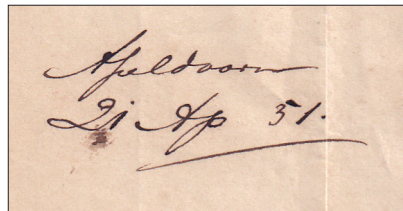 Apeldoorn
21 Ap 51.